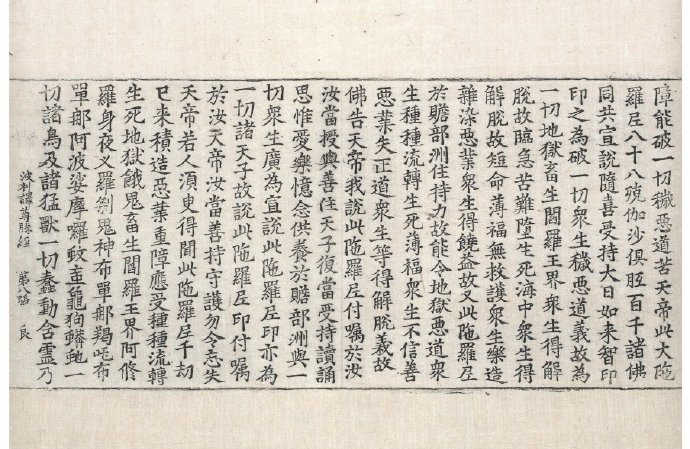 障能破一切穢惡道苦天帝此大陁
羅尼八十八殑伽沙俱胝百千諸佛
同共宣說隨喜受持大日如來智印
印之為破一切衆生穢惡道義故為
一切地獄畜生閻羅王界衆生得解
脫故臨急苦難墮生死海中衆生得
解脫故短命薄福無救護衆生樂造
雜染惡業衆生得饒益故又此陁羅尼
於贍部洲住持力故能令地獄惡道衆
生種種流轉生死薄福衆生不信善
惡業失正道衆生等得解脫義故
佛告天帝我說此陁羅尼付嘱於汝
汝當授與善住天子復當受持讀誦
思惟愛樂憶念供養於贍部洲與一
切衆生廣為宣說此陁羅尼印亦為
一切諸天子故說此陁羅尼印付嘱
於汝天帝汝當善持守護勿令忘失
天帝若人須臾得聞此陁羅尼千劫
已來積造惡業重障應受種種流轉
生死地獄餓鬼畜生閻羅王界阿修
羅身夜叉羅剎鬼神布單那羯吒布
單那阿波娑摩囉蚊虻龜狗蟒虵一
切諸鳥及諸猛獸一切蠢動含靈乃
波利譯尊勝經 第 張 良